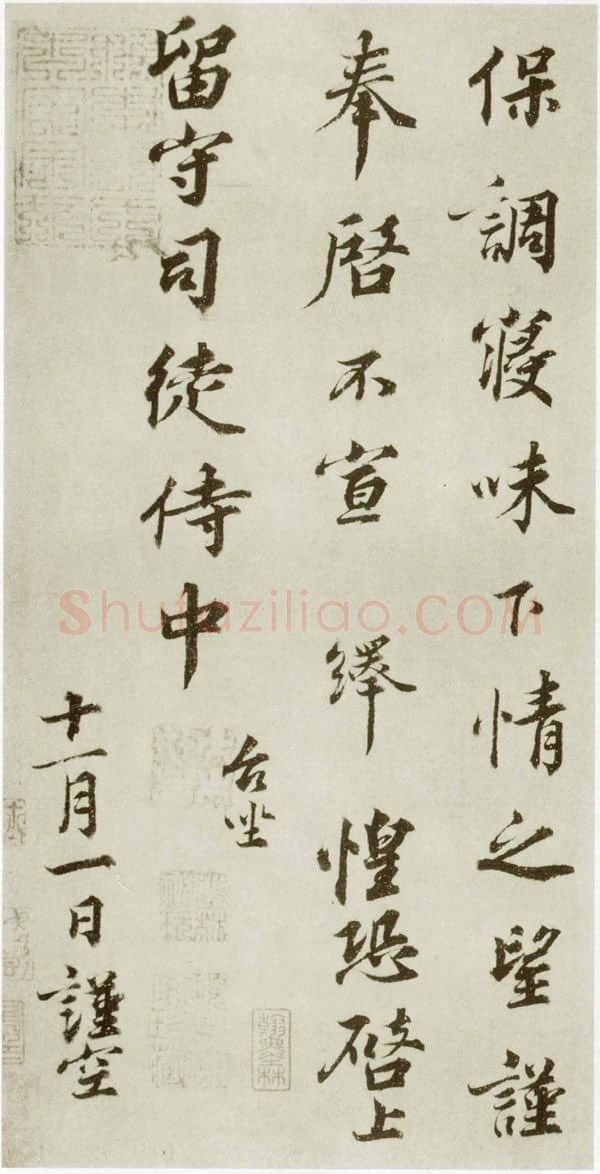 保調寢味下情之望謹
奉啓不宣 繹惶恐啓上
留守司徒侍中
台坐
十一月一日謹空
Shufaziliao.COM